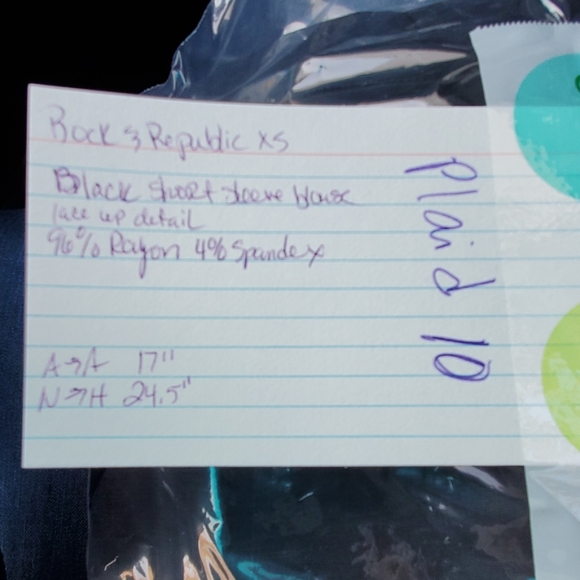 Rock & Republic XS
Black Short Sleeve blouse
lace up detail
96% Rayon 4% Spandex
A→A 17"
N→H 24.5"
Plaid 10